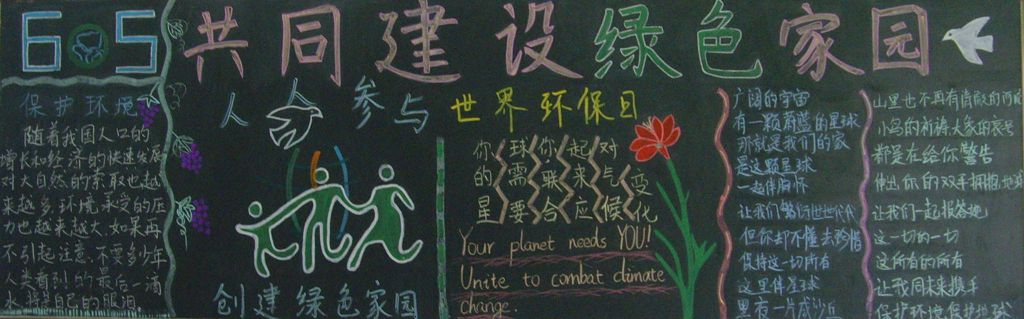 605
共同建设绿色家园
保护环境
随着我国人口的
增长和经济的快速发展
对大自然的索取也越
来越多,环境承受的压
力也越来越大,如果再
不引起注意,不要多少年
人类看到的最后一滴
水,将是自己的眼泪
人人参与
世界环保日
创建绿色家园
你球你起对
的需联来气变
星要合应候化
Your planet needs YOU!
Unite to combat climate
change.
广阔的宇宙
有一颗蔚蓝的星球
那就是我们的家
是这颗星球
一起伴
让我们世世代代
但你却不懂去珍惜
保持这一切所有
这里伴星球
黑夜一片
山里也不再有清澈的河
小鸟的大象的
都是在给你警告
伸出你的双手拥抱地球
让我们一起报答她
这一切的一切
这所有的所有
让我们未来携手
保护环境保护地球